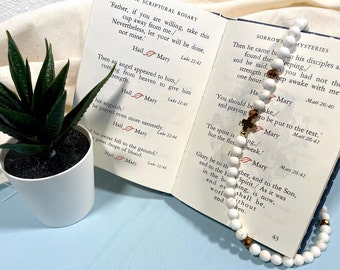 SCRIPTURAL ROSARY
Father, if you are willing, take this
cup away from me./
Nevertheless, let your will be done,
not mine.
Luke 22:42
Hail Mary
Then an angel appeared to him/
coming from heaven to give him
strength.
Luke 22:43
Hail Mary
anguish/
prayed
Luke 22:44
Hail Mary
sweat fell to the ground/
great drops of blood.
Luke 22:44
Hail Mary
SORROWFUL MYSTERIES
Then he came
his disciples a
found
and he said
you had not the
strength
awake with me
Matt 26:40
Hail Mary
You should be
awake,/
and praying
to be put to the test.
Matt 26:41
Hail Mary
The spirit is
but the
Matt 26:41
Hail Mary
Glory be to the
and to the Son,
and to the
Spirit./ As it was
and ever shall
without end.
43